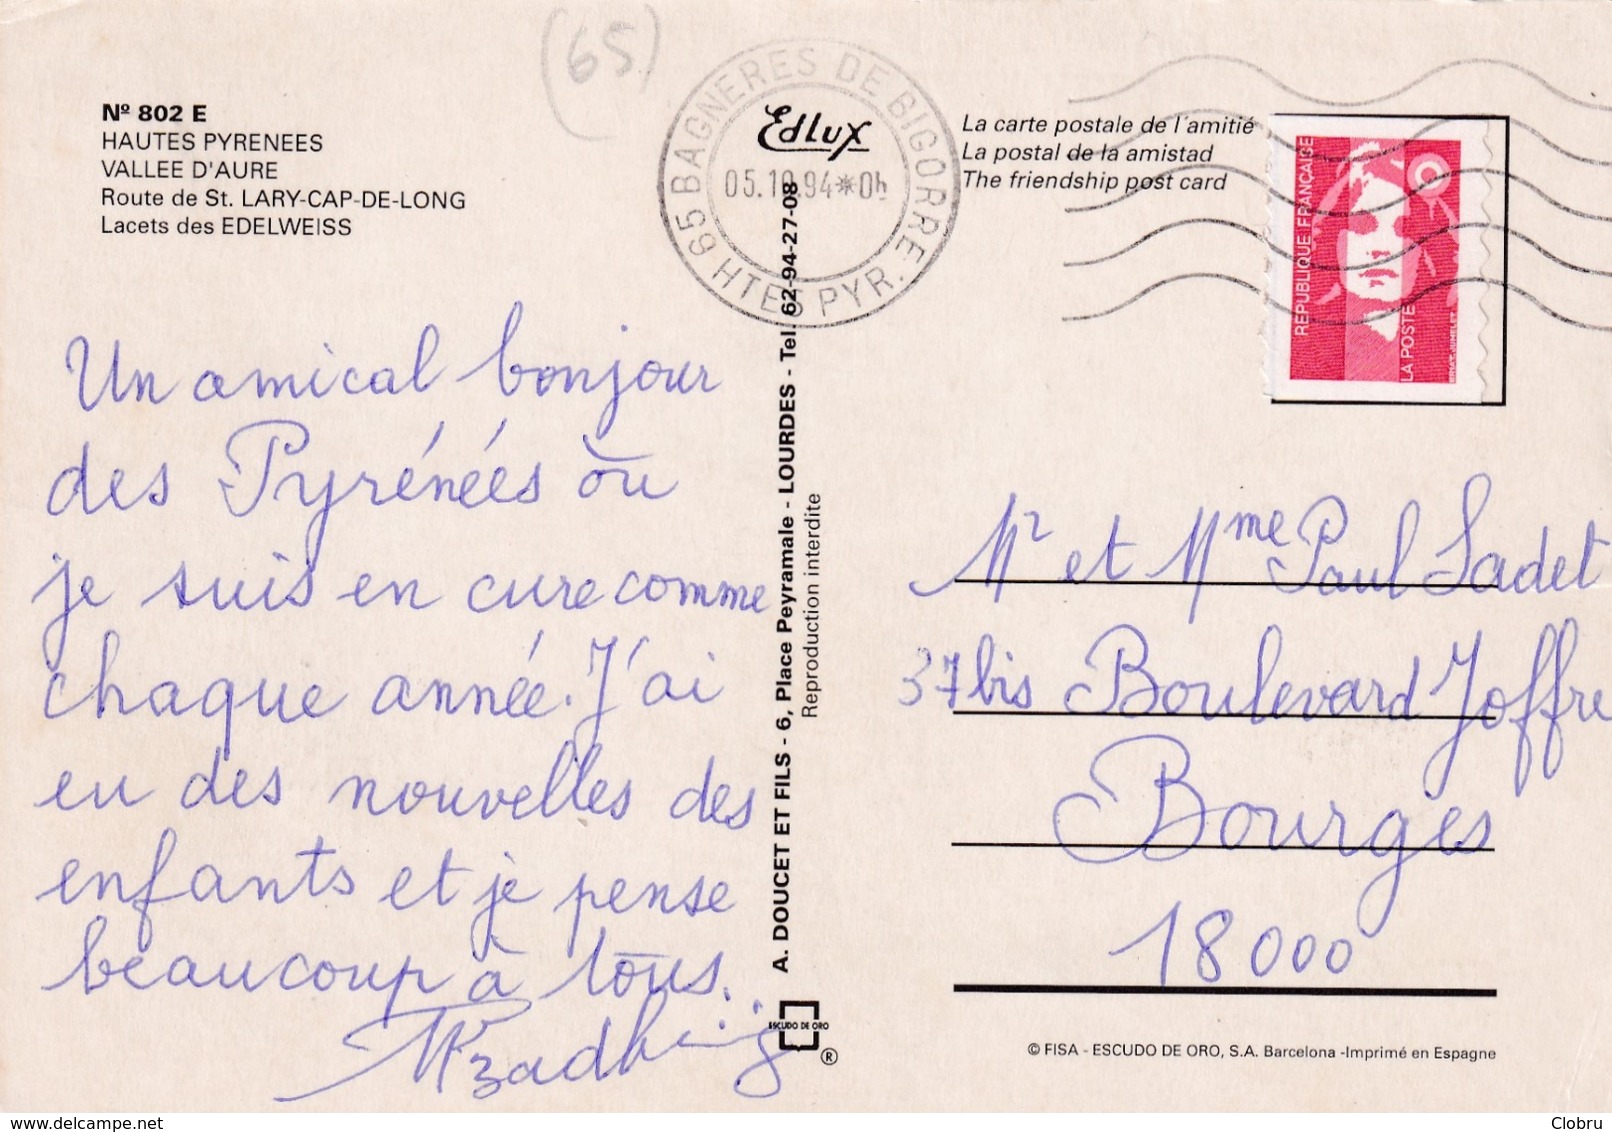 (65)
Nº 802 E
HAUTES PYRENEES
VALLEE D'AURE
Route de St. LARY-CAP-DE-LONG
Lacets des EDELWEISS
65 BAGNERES DE BIGORRE HTES PYR.
05.10.94*0h
Edlux
La carte postale de l'amitié
La postal de la amistad
The friendship post card
REPUBLIQUE FRANÇAISE
LA POSTE
Un amical bonjour
des Pyrénées où
je suis en cure comme
chaque année. J'ai
eu des nouvelles des
enfants et je pense
beaucoup à tous.
A. DOUCET ET FILS - 6, Place Peyramale - LOURDES - Tel. 62-94-27-08
Reproduction interdite
Mr et Mme Paul Sadet
37 bis Boulevard Joffre
Bourges
18000
ESCUDO DE ORO
®
© FISA - ESCUDO DE ORO, S.A. Barcelona -Imprimé en Espagne
Clobru